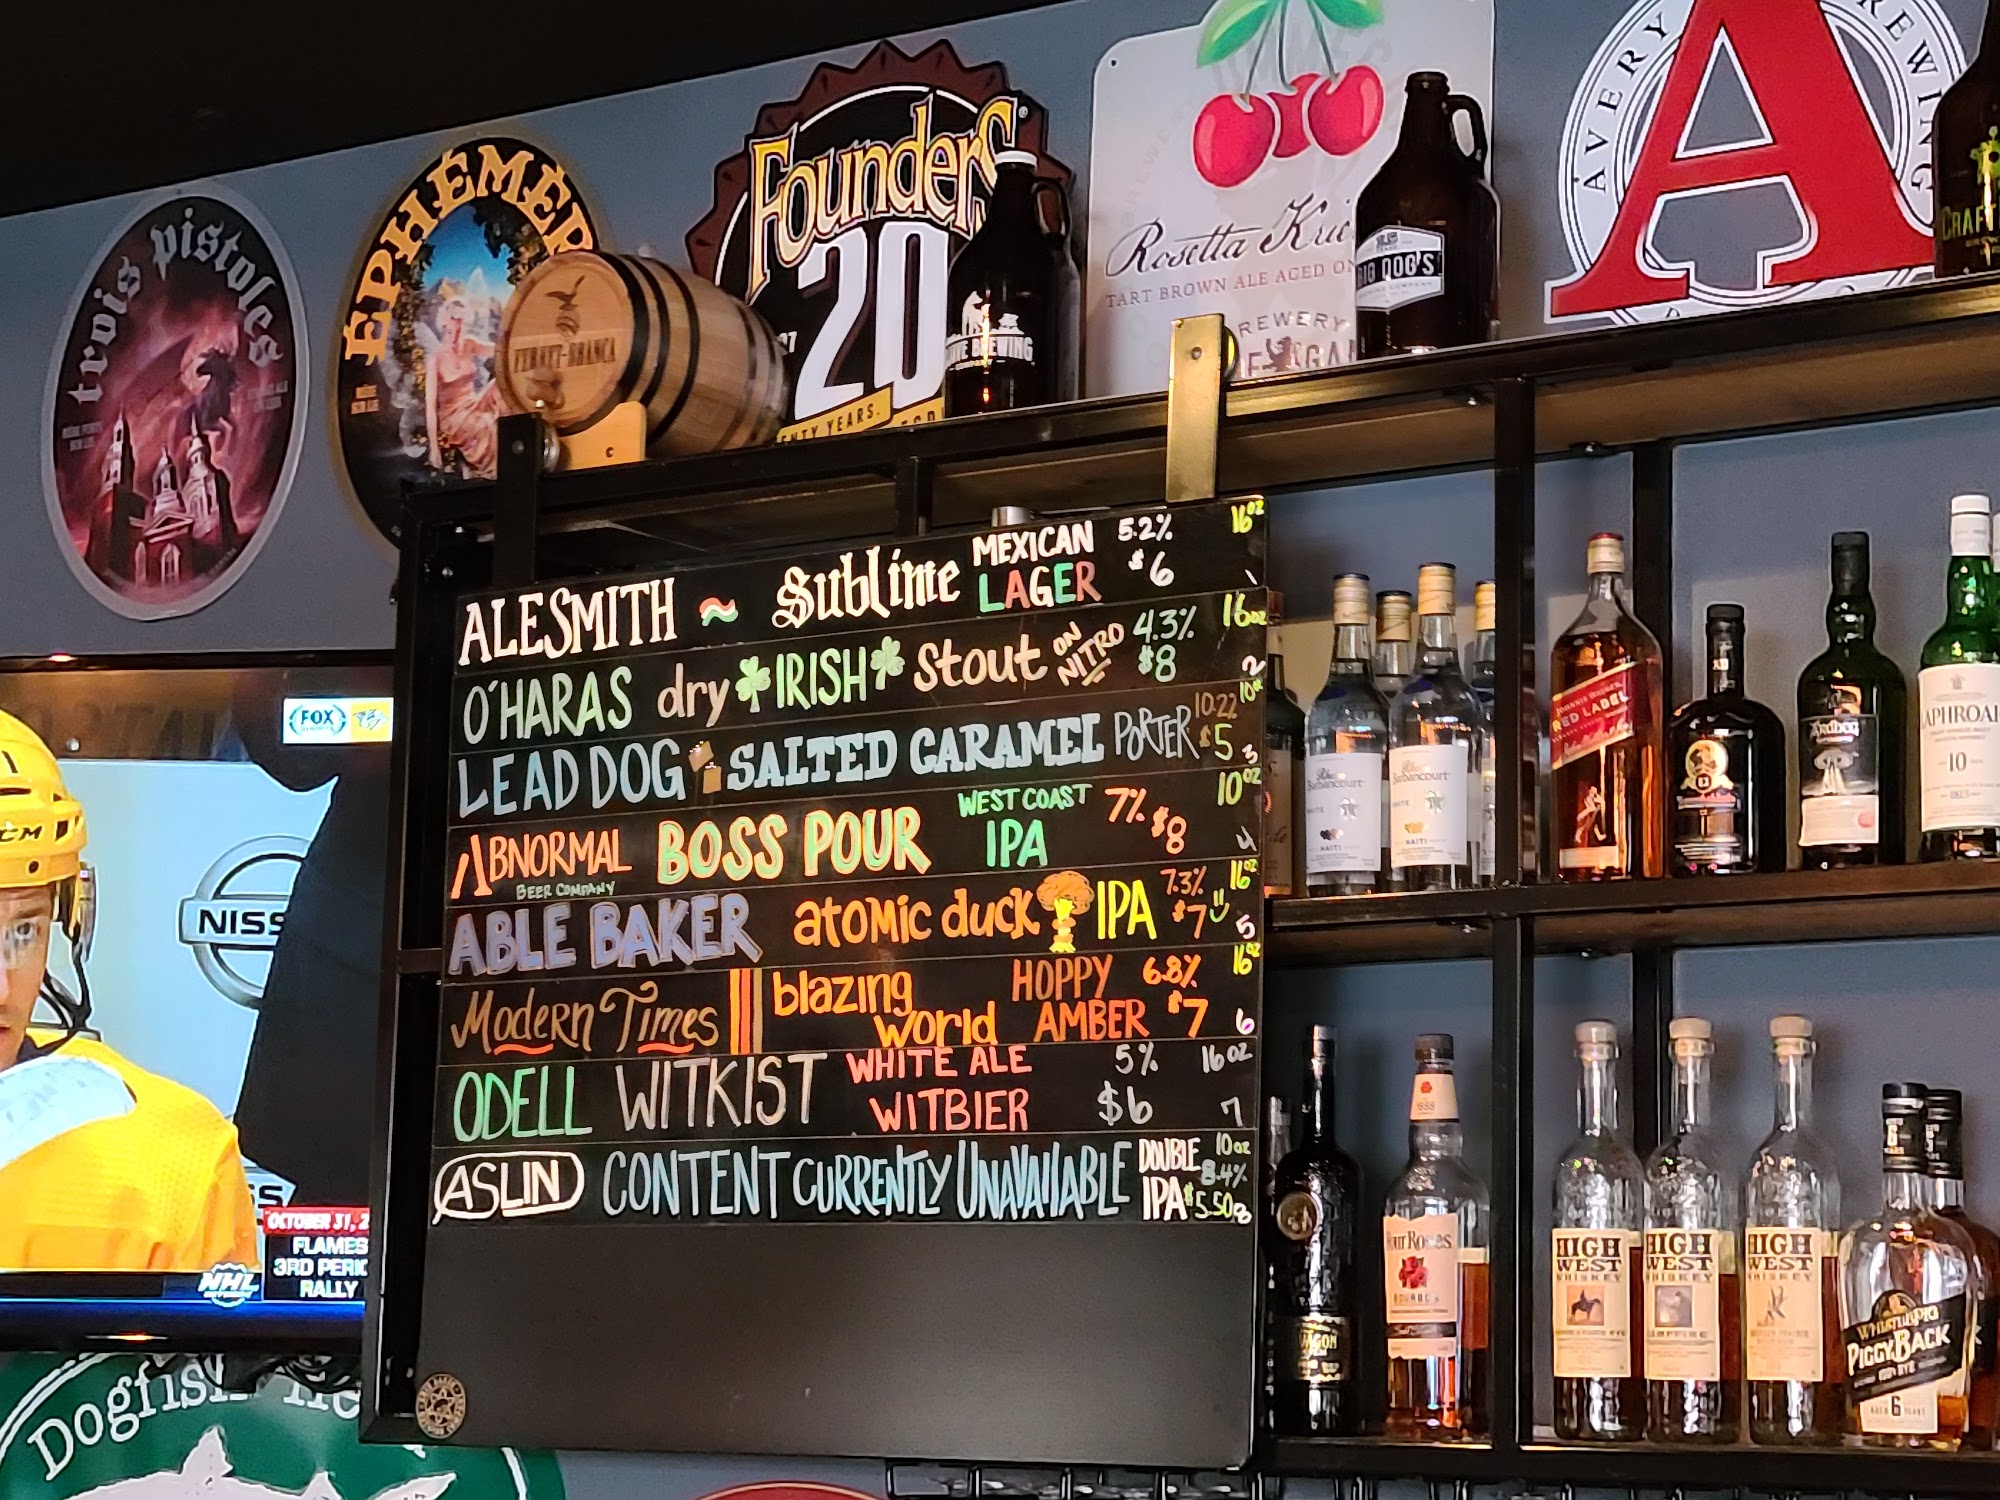 trois pistoles
ÉPHÉMÈR
FERNET-BRANCA
Founders
20
BREWING
Rosetta Krie
TART BROWN ALE AGED ON
BREWERY
BIG DOG'S
AVERY BREWING
A
CRAFT
ALESMITH ~ Sublime MEXICAN LAGER 5.2% $6 16oz 1
O'HARAS dry IRISH Stout ON NITRO 4.3% $8 16oz 2
LEAD DOG SALTED CARAMEL PORTER 10.22 $5 3
ABNORMAL BEER COMPANY BOSS POUR WEST COAST IPA 7% $8 10oz 4
ABLE BAKER atomic duck IPA 7.3% $7 16oz 5
Modern Times blazing world HOPPY AMBER 6.8% $7 16oz 6
ODELL WITKIST WHITE ALE WITBIER 5% $6 16oz 7
ASLIN CONTENT CURRENTLY UNAVAILABLE DOUBLE IPA 10oz 8.4% $5.50 8
FOX
CCM
NISS
OCTOBER 31, 2
FLAMES
3RD PERIO
RALLY
NHL
Dogfish He
Rhum Barbancourt
HAITI
Rhum Barbancourt
HAITI
JOHNNIE WALKER
RED LABEL
Ardbeg
LAPHROAI
10
1815
Four Roses
BOURBON
1888
HIGH WEST WHISKEY
HIGH WEST WHISKEY
HIGH WEST WHISKEY
WHISTLEPIG
PIGGYBACK
RYE
AGED 6 YEARS